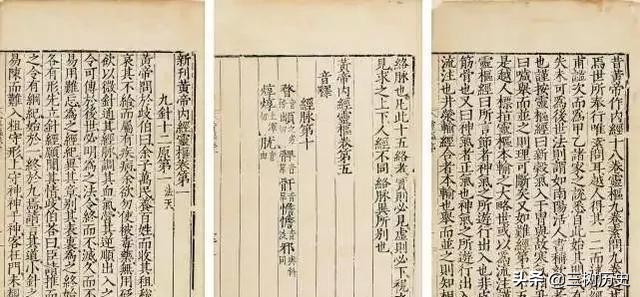 昔黃帝作內經十八卷靈樞九卷素問九
焉世所奉行唯素問耳越人得其一二而述
甫謐次而為甲乙諸家之說悉自此始其間
失未可為後世法則謂如南陽活人書稱欬
也謹按靈樞經曰新穀氣入于胃與故寒氣
曰噦舉而並之則理可斷矣又如難經第
是越人標指靈樞本輸之大略世或以為流注
靈樞經曰所言節者神氣之所遊行出入也非
筋骨也又曰神氣者正氣也神氣之所遊行出入
流注也井滎輸經合者本輸也舉而並之則知相
絡脉也凡此十五絡者實則必見虛則必下視
見求之上下人經不同絡脉異所別也
黃帝內經靈樞卷第五
音釋
經脉第十
新刊黃帝內經靈樞卷第
九針十二原第一 法天
黃帝問於歧伯曰余子萬民養百姓而收其租稅
哀其不給而屬有疾病余欲勿使被毒藥無用砭
欲以微針通其經脉調其血氣營其逆順出入之
令可傳於後世必明為之法令終而不滅久而不
易用難忘為之經紀異其章別其表裏為之終始
各有形先立針經願聞其情歧伯答曰臣請推而
之令有綱紀始於一終於九焉請言其道小針之
易陳而難入粗守形上守神神乎神客在門未覩
头条 @三树历史